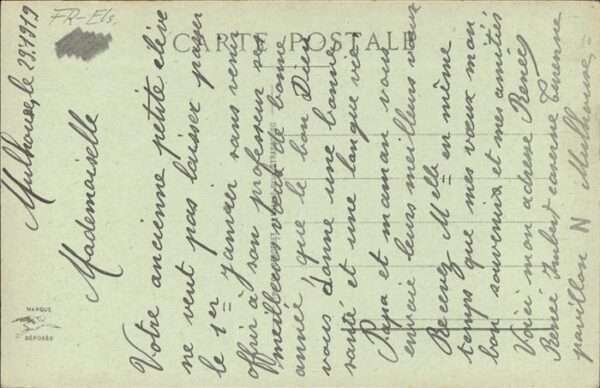 FR-Els.
CARTE POSTALE
Mulhouse, le 29.7.1919
Mademoiselle
Votre ancienne petite élève
ne veut pas laisser passer
le 1er Janvier sans venir
offrir à son professeur ses
meilleurs vœux de bonne
année, que le bon Dieu
vous donne une bonne
santé et une longue vie
Papa et maman vous
envoie leurs meilleurs vœux
Recevez Melle en même
temps que mes vœux mon
bon souvenir et mes amitiés
Voici mon adresse Renée
Renée Imbert caserne Turenne
pavillon N Mulhouse
MARQUE
DÉPOSÉE